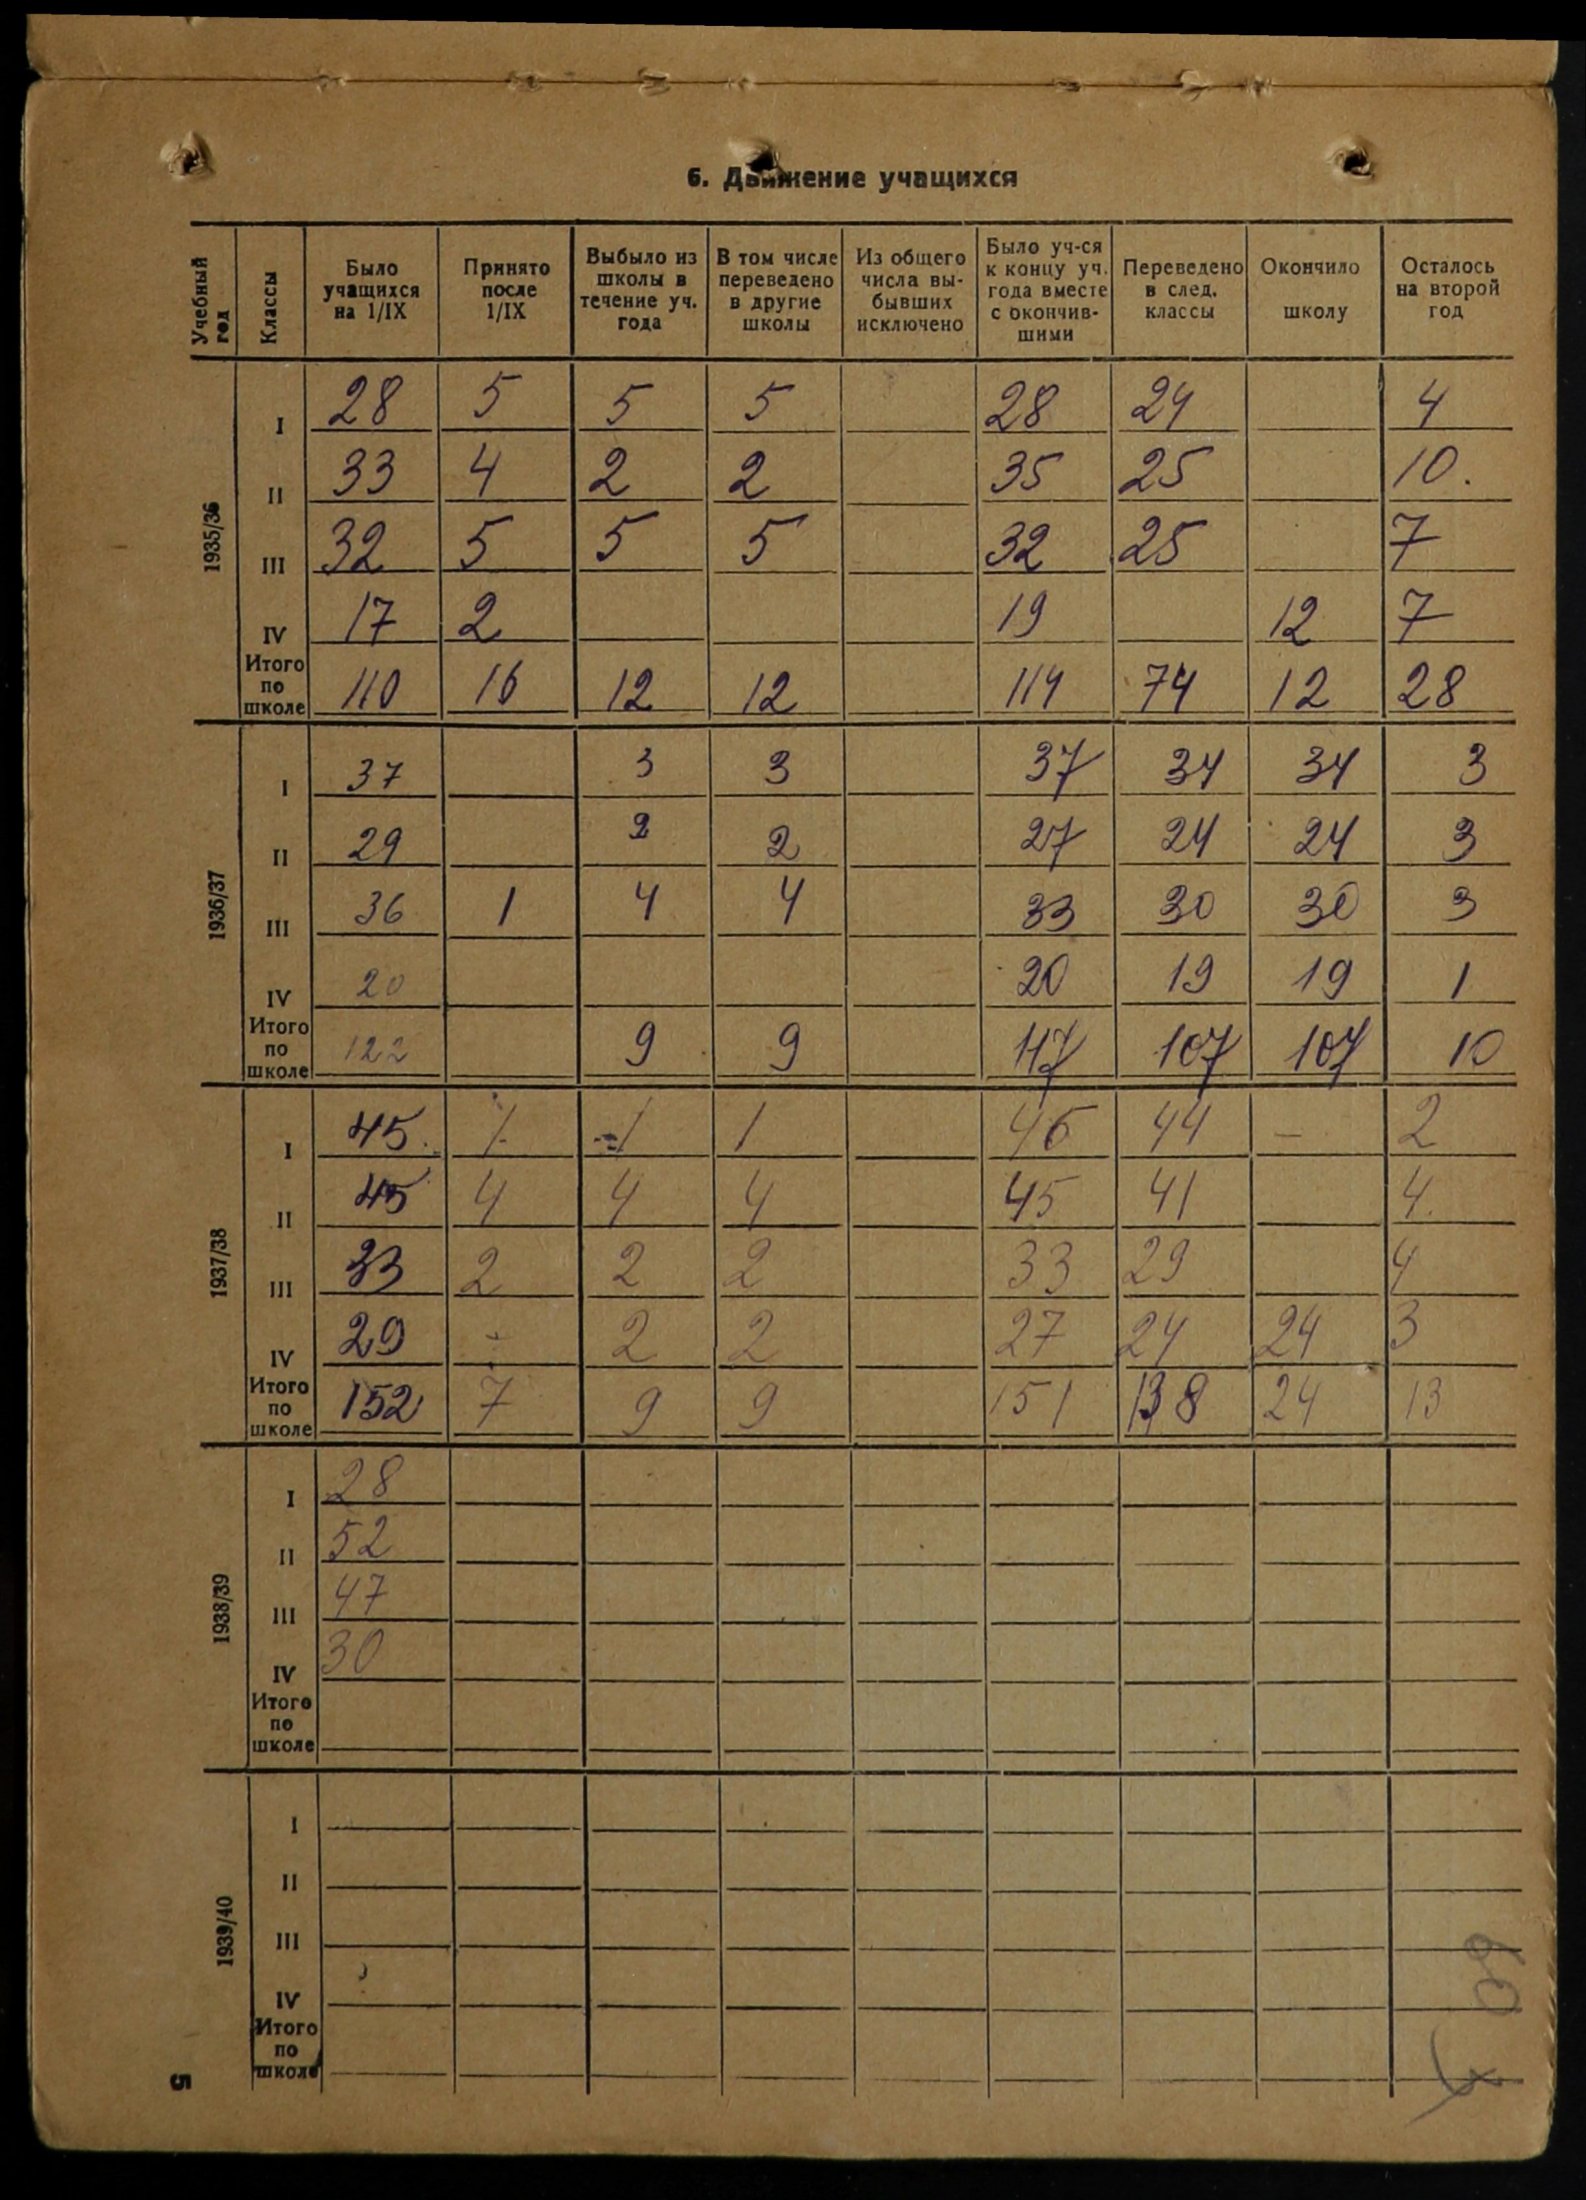 6. Движение учащихся
Учебный год | Классы | Было учащихся на 1/IX | Принято после 1/IX | Выбыло из школы в течение уч. года | В том числе переведено в другие школы | Из общего числа выбывших исключено | Было уч-ся к концу уч. года вместе с окончившими | Переведено в след. классы | Окончило школу | Осталось на второй год
1935/36
I 28 5 5 5 28 24 4
II 33 4 2 2 35 25 10.
III 32 5 5 5 32 25 7
IV 17 2 19 12 7
Итого по школе 110 16 12 12 114 74 12 28
1936/37
I 37 3 3 37 34 34 3
II 29 2 2 27 24 24 3
III 36 1 4 4 33 30 30 3
IV 20 20 19 19 1
Итого по школе 122 9 9 117 107 107 10
1937/38
I 45. 1 1 46 44 — 2
II 45 4 4 4 45 41 4.
III 33 2 2 2 33 29 4
IV 29 2 2 27 24 24 3
Итого по школе 152 7 9 9 151 138 24 13
1938/39
I 28
II 52
III 47
IV 30
Итого по школе
1939/40
I
II
III
IV
Итого по школе
5